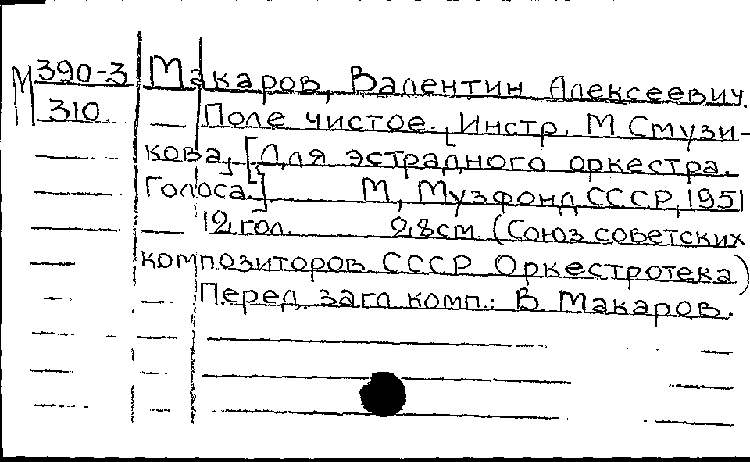 М 390-3 Макаров, Валентин Алексеевич.
310 Поле чистое. [Инстр. М Смузи-
кова,] [Для эстрадного оркестра.
Голоса.] М, Музфонд СССР, 1951
12 гол. 28 см (Союз советских
композиторов СССР Оркестротека)
Перед загл комп.: В. Макаров.